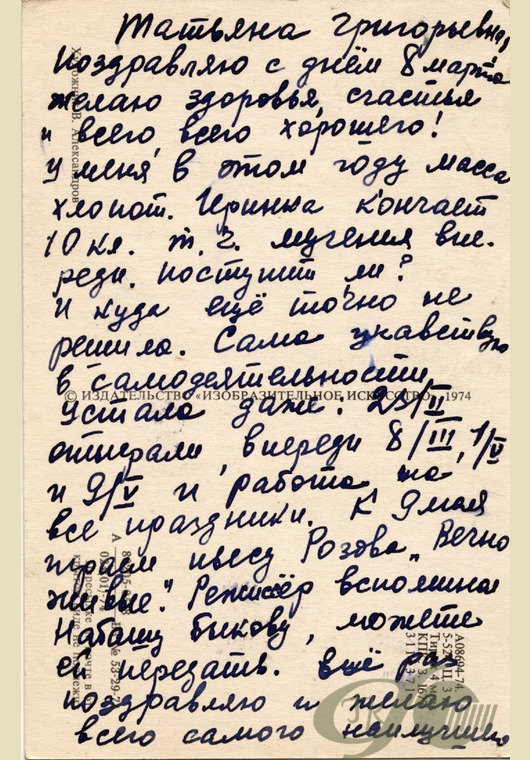 Татьяна Григорьевна,
поздравляю с днём 8 марта
желаю здоровья, счастья
и всего, всего хорошего!
У меня в этом году масса
хлопот. Иринка кончает
10 кл. т. ч. мучения впе-
реди. Поступит ли?
И куда ещё точно не
решила. Сама участвую
в самодеятельности
© ИЗДАТЕЛЬСТВО «ИЗОБРАЗИТЕЛЬНОЕ ИСКУССТВО» 1974
Устала даже. 23/II
отыграли, впереди 8/III, 1/V
и 9/V и работа на
все праздники. К 9 мая
играем пьесу Розова „Вечно
живые". Режиссёр вспоминал
Наташу Быкову, можете
ей передать. Ещё раз
поздравляю и желаю
всего самого наилучшего
Художник В. Александров
А08694-74.